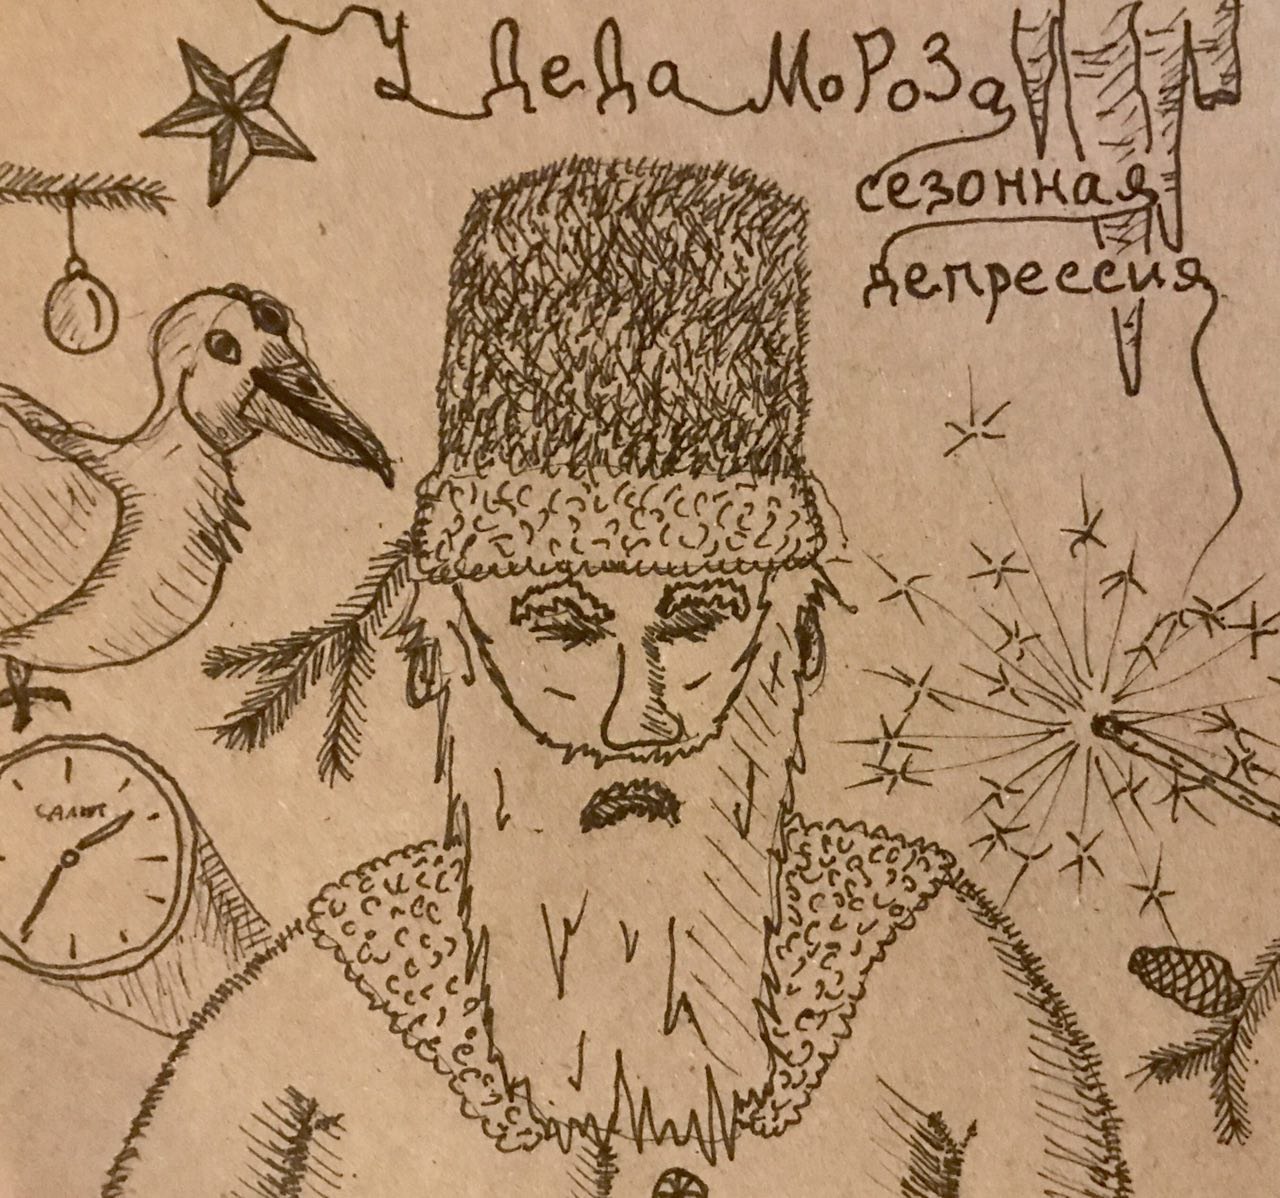 У ДеДа МоРоЗа
сезонная
депрессия
САЛЮТ